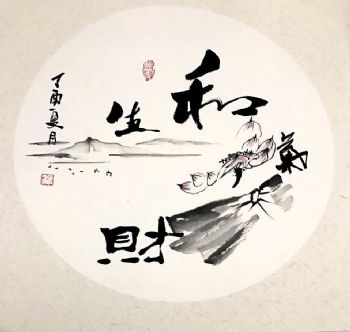 和氣
生財
丁酉夏月